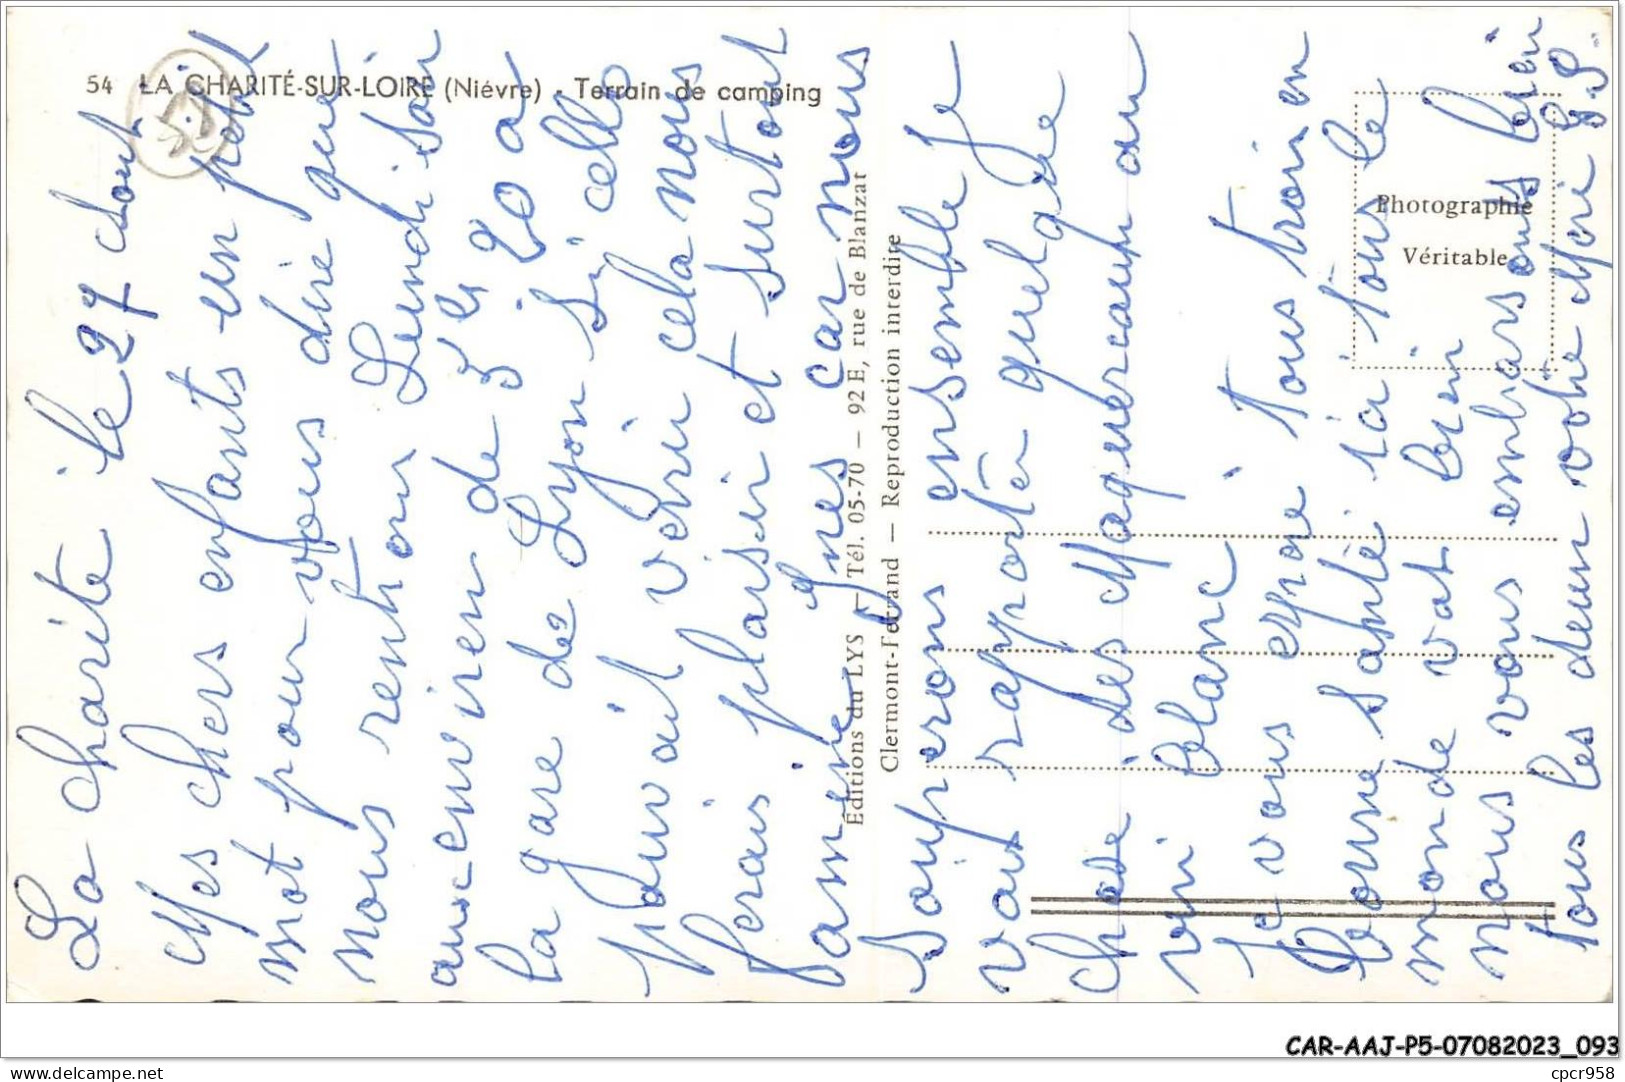 54 LA CHARITÉ-SUR-LOIRE (Nièvre) - Terrain de camping
La charite le 27 Aout
Mes chers enfants un petit
mot pour vous dire que
nous rentrons Lundi soir
aux environ de 5 h 20 a
la gare de Lyon si cella
pouvait venir cela nous
ferais plaisir et surtout
car nous
souperons ensemble Je
vais raporté quelque
chose des Maquereaux au
vin blanc
Je vous espere tous trois en
bonne santé ici tous le
monde vat bien
nous vous embrasons bien
tous les deux votre
Éditions du LYS — Tél. 05-70 — 92 E, rue de Blanzat
Clermont-Ferrand — Reproduction interdite
Photographie
Véritable
CAR-AAJ-P5-07082023_093
www.delcampe.net
cpcr958